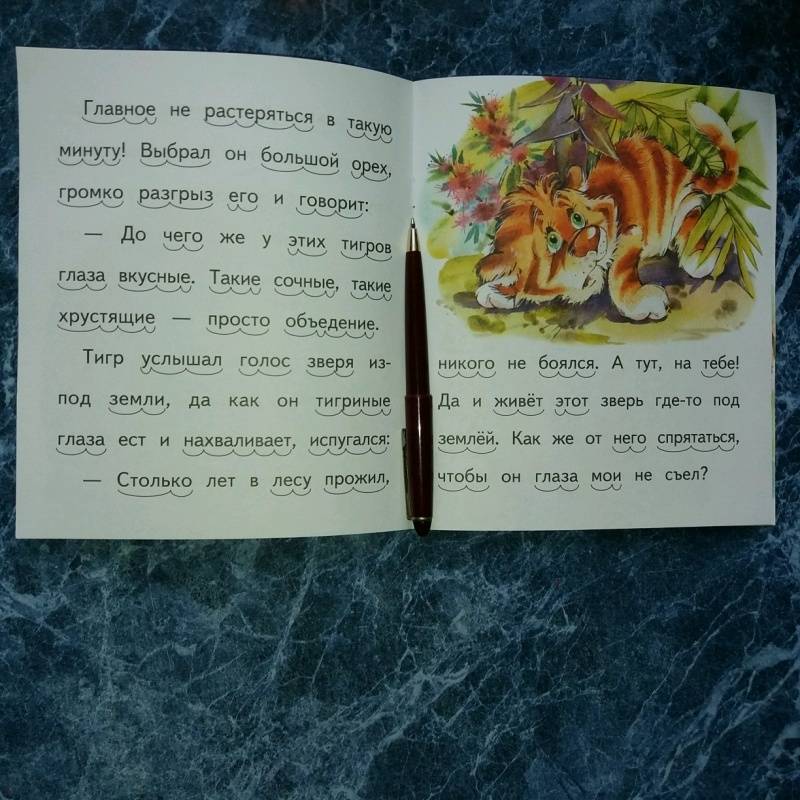 Главное не растеряться в такую
минуту! Выбрал он большой орех,
громко разгрыз его и говорит:
— До чего же у этих тигров
глаза вкусные. Такие сочные, такие
хрустящие — просто объедение.
Тигр услышал голос зверя из-
под земли, да как он тигриные
глаза ест и нахваливает, испугался:
— Столько лет в лесу прожил,
никого не боялся. А тут, на тебе!
Да и живёт этот зверь где-то под
землёй. Как же от него спрятаться,
чтобы он глаза мои не съел?